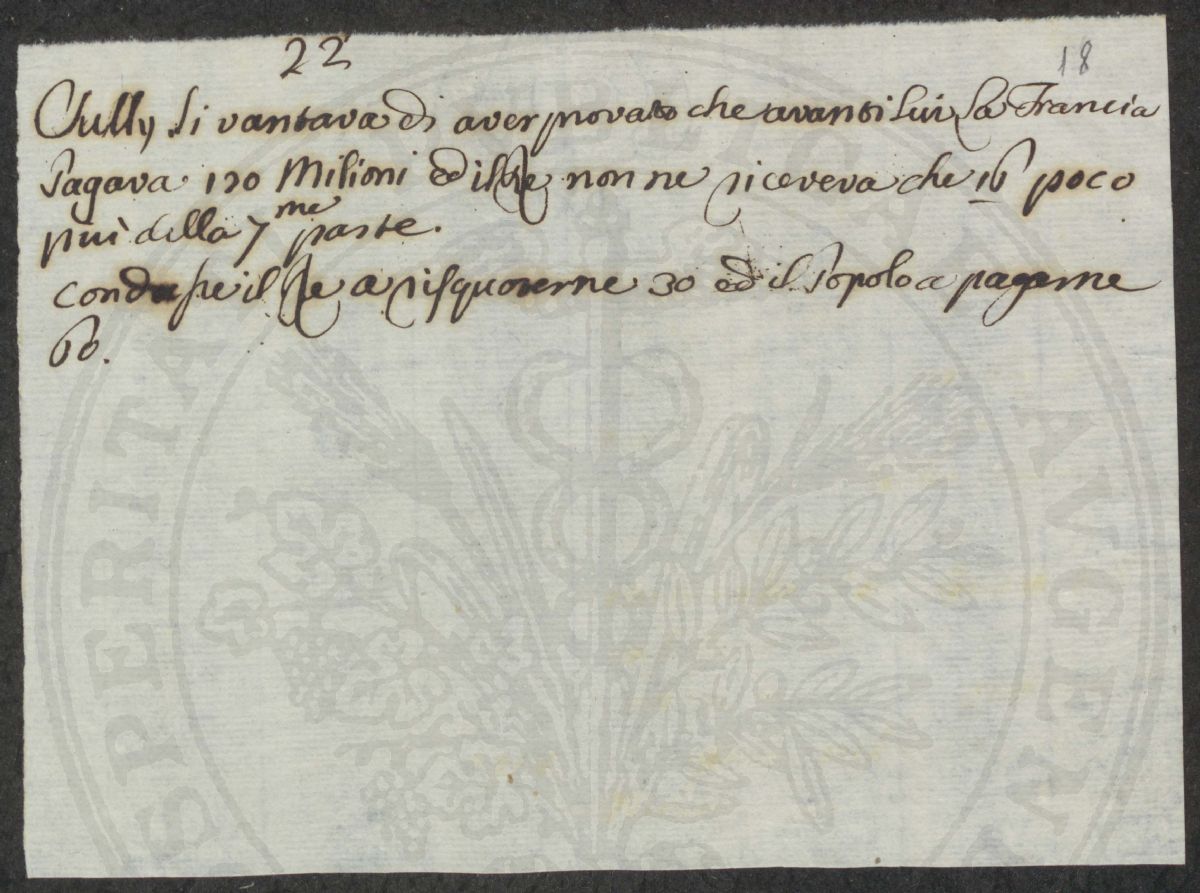 22
18
Sully si vantava di aver provato che avanti lui La Francia
Pagava Milioni ed il Re non ne riceveva che 16 poco
più della 7me parte.
condusse il Re a risquoterne 30 ed il Popolo a pagarne
60.
SPERITA
AVGEN